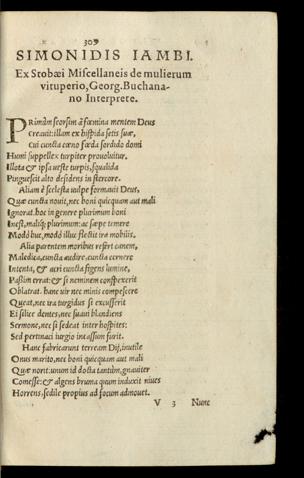 309
SIMONIDIS IAMBI.
Ex Stobæi Miſcellaneis de mulierum
vituperio, Georg. Buchana-
no Interprete.
PRimùm ſeorſim à fœmina mentem Deus
creauit: illam ex hiſpida ſetis ſuæ,
cui cuncta cœno fœda ſordido domi
Humi ſuppellex turpiter prouoluitur.
Illota & ipſa veſte turpis, ſqualida
Pingueſcit alto deſidens in ſtercore.
Aliam è ſceleſta vulpe formauit Deus,
Quæ cuncta nouit, nec boni quicquam aut mali
Ignorat. hoc in genere plurimum boni
Ineſt, maliq; plurimum: ac ſæpe temere
Modò huc, modò illuc flectit ira mobilis.
Alia parentem moribus refert canem,
Maledica, cuncta audire, cuncta cernere
Intenta, & acri cuncta figens lumine,
Paſſim errat: & ſi neminem conſpexerit
Oblatrat. hanc vir nec minis compeſcere
Queat, nec ira turgidus ſi excuſſerit
Ei ſilice dentes, nec ſuaui blandiens
Sermone, nec ſi ſedeat inter hoſpites:
Sed pertinaci iurgio inſaſſum furit.
Hanc fabricarunt terream Dij, inutile
Onus marito, nec boni quicquam aut mali
Quæ norit: unum id docta tantùm, gnauiter
Comeſſe: & algens bruma quum induxit niues
Horrens, ſedile propius ad focum admouet.
V 3 Nunc